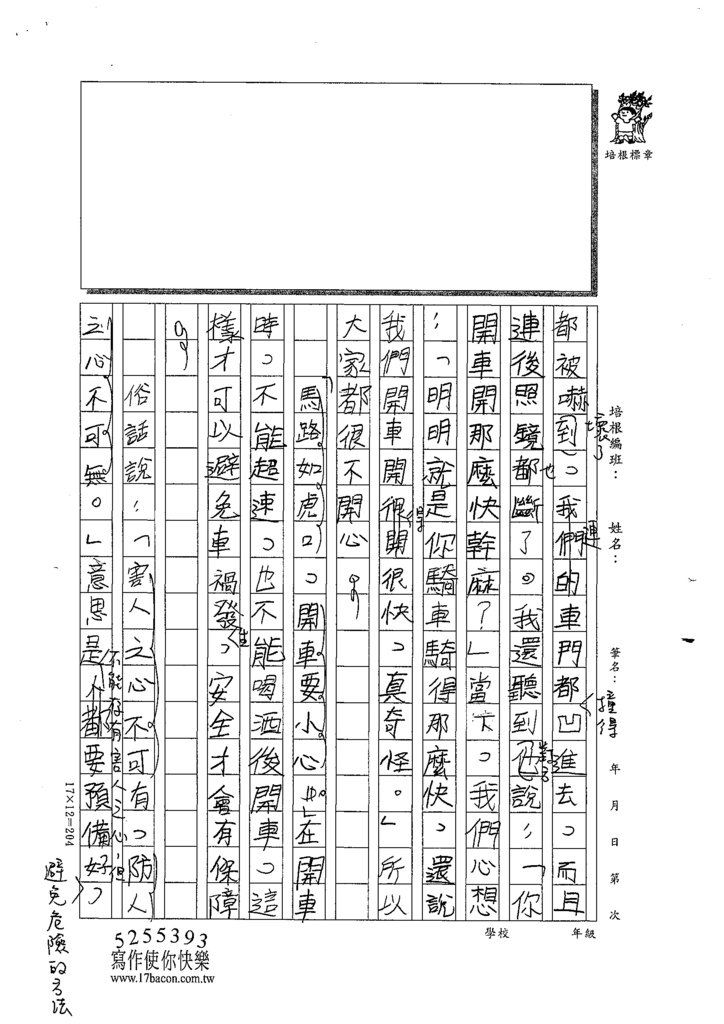 培根標章
培根編班： 姓名： 筆名： 年 月 日 第 次
學校 年級
都被嚇到，我們的車門都凹進去，而且
壞了
連
撞得
連後照鏡都斷了。我還聽到他說：「你
也
對方
開車開那麼快幹麻？」當下，我們心想
：「明明就是你騎車騎得那麼快，還說
我們開車開很開很快，真奇怪。」所以
得
大家都很不開心。
馬路如虎口，開車要小心。」在開車
時，不能超速，也不能喝酒後開車，這
樣才可以避免車禍發，安全才會有保障
生
。
俗話說：「害人之心不可有，防人
之心不可無。」意思是人都要預備好，
不能存有害人之心，但
避免危險的方法
17×12=204
5255393
寫作使你快樂
www.17bacon.com.tw